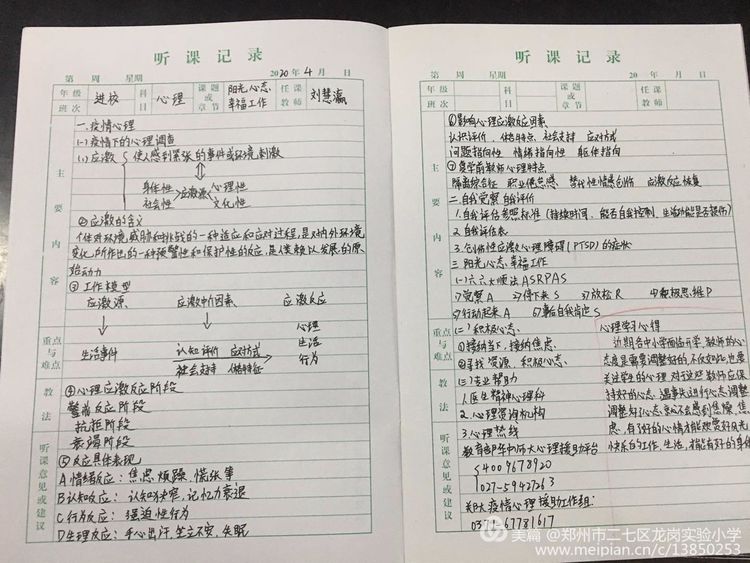 听课记录
第 周 星期 2020年4月 日
年级 班次 进校 科目 心理 课题或章节 阳光心态 幸福工作 任课教师 刘慧瀛
主要内容
一.疫情心理
(一)疫情下的心理调查
(1)应激 使人感到紧张的事件或环境刺激
身体性 应激源 心理性
社会性 文化性
②应激的含义
个体对环境威胁和挑战的一种适应和应对过程,是对内外环境
变化所作出的一种预警性和保护性的反应,是人类赖以发展的原
始动力
③工作模型
应激源 应激中介因素 应激反应
心理
重点与难点
生活事件 认知评价 应对方式 生活
社会支持 人格特征 行为
教法
④心理应激反应阶段
警觉反应阶段
抗拒阶段
衰竭阶段
听课意见或建议
⑤反应具体表现
A情绪反应:焦虑烦躁、慌张等
B认知反应:认知狭窄,记忆力衰退
C行为反应:强迫性行为
D生理反应:手心出汗,坐立不安,失眠
听课记录
第 周 星期 20 年 月 日
年级 班次 科目 课题或章节 任课教师
主要内容
⑥影响心理应激反应因素
认识评价、人格特点、社会支持 应对方式
问题指向性 情绪指向性 躯体指向
⑦复学前教师心理特点
隔离综合征 职业倦怠感 替代性情感创伤 应激反应恢复
二.自我觉察 自我评估
1.自我评估参照标准(持续时间、能否自我控制、生活功能是否损伤)
2.自我评估表
3.创伤性应激心理障碍(PTSD)的症状
三.阳光心态 幸福工作
(一)六六大顺法ASRPAS
①觉察A ②停下来S ③放松R ④积极思维P
⑤行动起来A ⑥事后自我肯定S
重点与难点
(二)积极心态.
①接纳当下、接纳焦虑.
②寻找资源、积极心态.
教法
(三)专业帮助
1.医生精神心理科
2.心理咨询机构
3.心理热线
听课意见或建议
教育部华中师大心理援助平台
4009678920
027-59427263
郑大疫情心理援助工作组:
0371-67781617
心理学习心得
近期各中小学面临开学,教师的心
态度是需要调整好的,不仅如此,也要
关注学生的心理,对于这些教师应保
持好的心态,遇事先进行心态调整
调整好了心态,就不会感到焦躁、焦
虑,有了好的心情才能观赏好风光
快乐的工作、生活,才能有好的身体
美篇 @郑州市二七区龙岗实验小学
www.meipian.cn/c/13850253